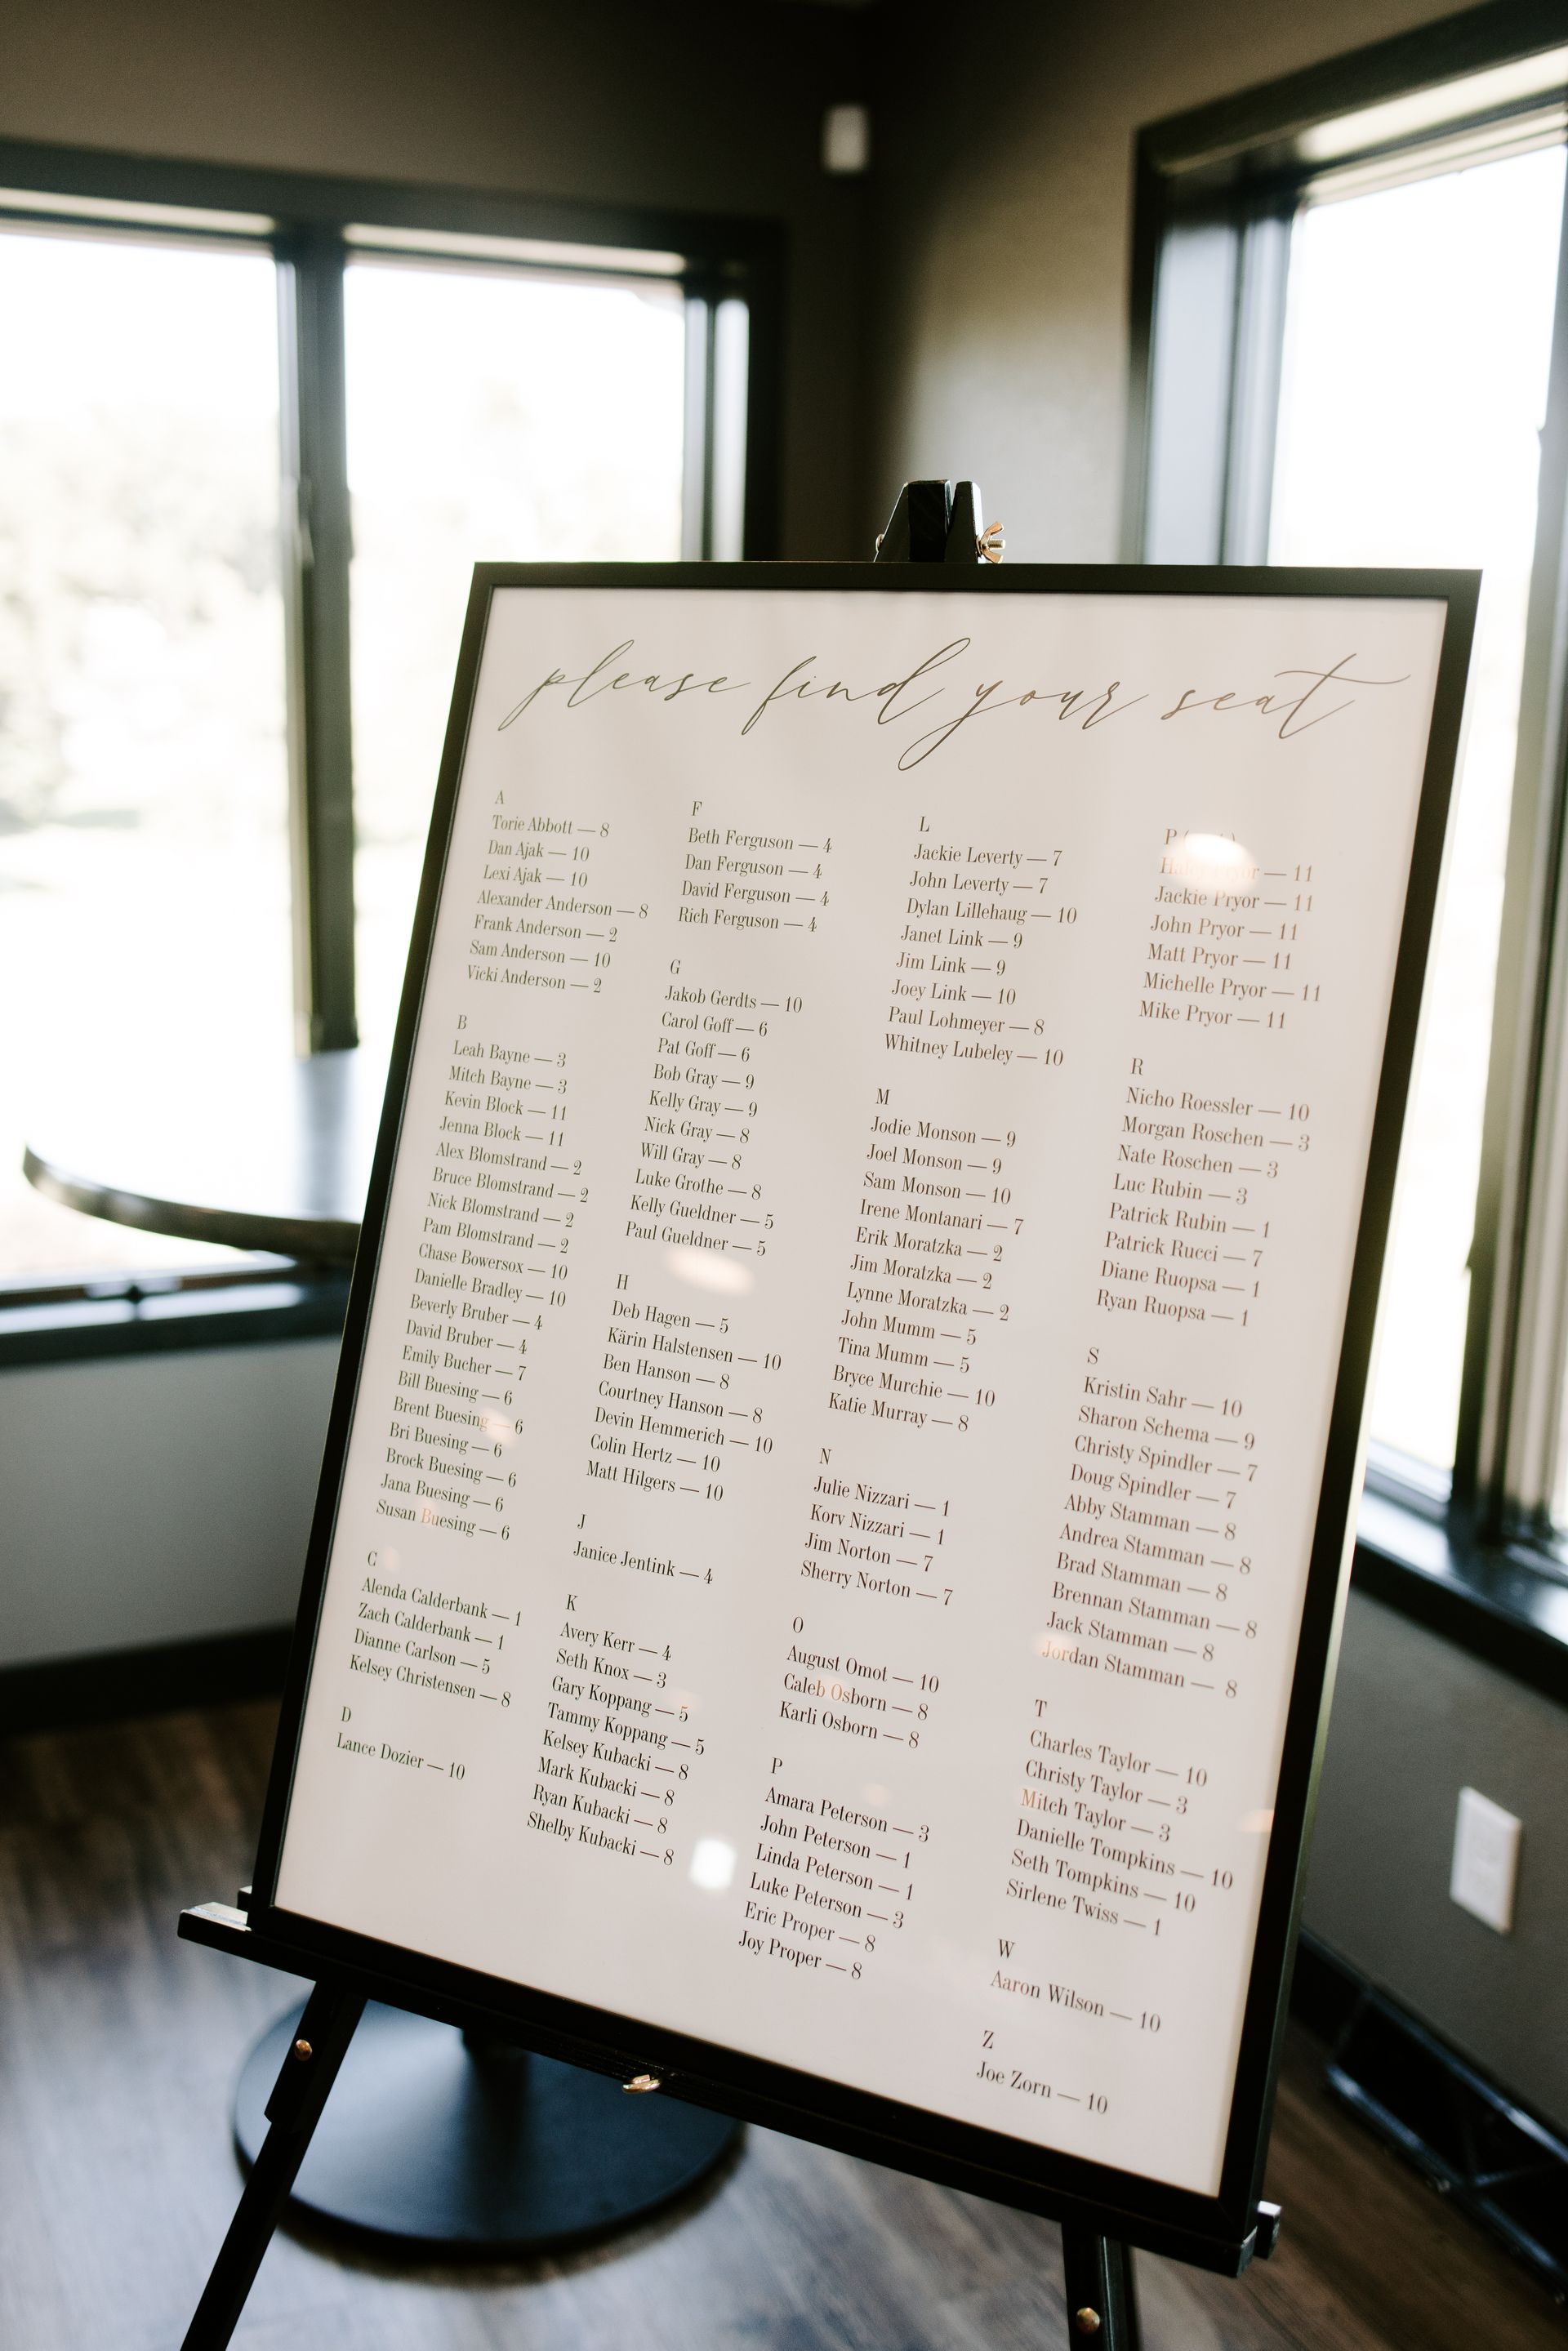 please find your seat
A
Torie Abbott — 8
Dan Ajak — 10
Lexi Ajak — 10
Alexander Anderson — 8
Frank Anderson — 2
Sam Anderson — 10
Vicki Anderson — 2
B
Leah Bayne — 3
Mitch Bayne — 3
Kevin Block — 11
Jenna Block — 11
Alex Blomstrand — 2
Bruce Blomstrand — 2
Nick Blomstrand — 2
Pam Blomstrand — 2
Chase Bowersox — 10
Danielle Bradley — 10
Beverly Bruber — 4
David Bruber — 4
Emily Bucher — 7
Bill Buesing — 6
Brent Buesing — 6
Bri Buesing — 6
Brock Buesing — 6
Jana Buesing — 6
Susan Buesing — 6
C
Alenda Calderbank — 1
Zach Calderbank — 1
Dianne Carlson — 5
Kelsey Christensen — 8
D
Lance Dozier — 10
F
Beth Ferguson — 4
Dan Ferguson — 4
David Ferguson — 4
Rich Ferguson — 4
G
Jakob Gerdts — 10
Carol Goff — 6
Pat Goff — 6
Bob Gray — 9
Kelly Gray — 9
Nick Gray — 8
Will Gray — 8
Luke Grothe — 8
Kelly Gueldner — 5
Paul Gueldner — 5
H
Deb Hagen — 5
Kärin Halstensen — 10
Ben Hanson — 8
Courtney Hanson — 8
Devin Hemmerich — 10
Colin Hertz — 10
Matt Hilgers — 10
J
Janice Jentink — 4
K
Avery Kerr — 4
Seth Knox — 3
Gary Koppang — 5
Tammy Koppang — 5
Kelsey Kubacki — 8
Mark Kubacki — 8
Ryan Kubacki — 8
Shelby Kubacki — 8
L
Jackie Leverty — 7
John Leverty — 7
Dylan Lillehaug — 10
Janet Link — 9
Jim Link — 9
Joey Link — 10
Paul Lohmeyer — 8
Whitney Lubeley — 10
M
Jodie Monson — 9
Joel Monson — 9
Sam Monson — 10
Irene Montanari — 7
Erik Moratzka — 2
Jim Moratzka — 2
Lynne Moratzka — 2
John Mumm — 5
Tina Mumm — 5
Bryce Murchie — 10
Katie Murray — 8
N
Julie Nizzari — 1
Korv Nizzari — 1
Jim Norton — 7
Sherry Norton — 7
O
August Omot — 10
Caleb Osborn — 8
Karli Osborn — 8
P
Amara Peterson — 3
John Peterson — 1
Linda Peterson — 1
Luke Peterson — 3
Eric Proper — 8
Joy Proper — 8
P
Pryor — 11
Jackie Pryor — 11
John Pryor — 11
Matt Pryor — 11
Michelle Pryor — 11
Mike Pryor — 11
R
Nicho Roessler — 10
Morgan Roschen — 3
Nate Roschen — 3
Luc Rubin — 3
Patrick Rubin — 1
Patrick Rucci — 7
Diane Ruopsa — 1
Ryan Ruopsa — 1
S
Kristin Sahr — 10
Sharon Schema — 9
Christy Spindler — 7
Doug Spindler — 7
Abby Stamman — 8
Andrea Stamman — 8
Brad Stamman — 8
Brennan Stamman — 8
Jack Stamman — 8
Jordan Stamman — 8
T
Charles Taylor — 10
Christy Taylor — 3
Mitch Taylor — 3
Danielle Tompkins — 10
Seth Tompkins — 10
Sirlene Twiss — 1
W
Aaron Wilson — 10
Z
Joe Zorn — 10